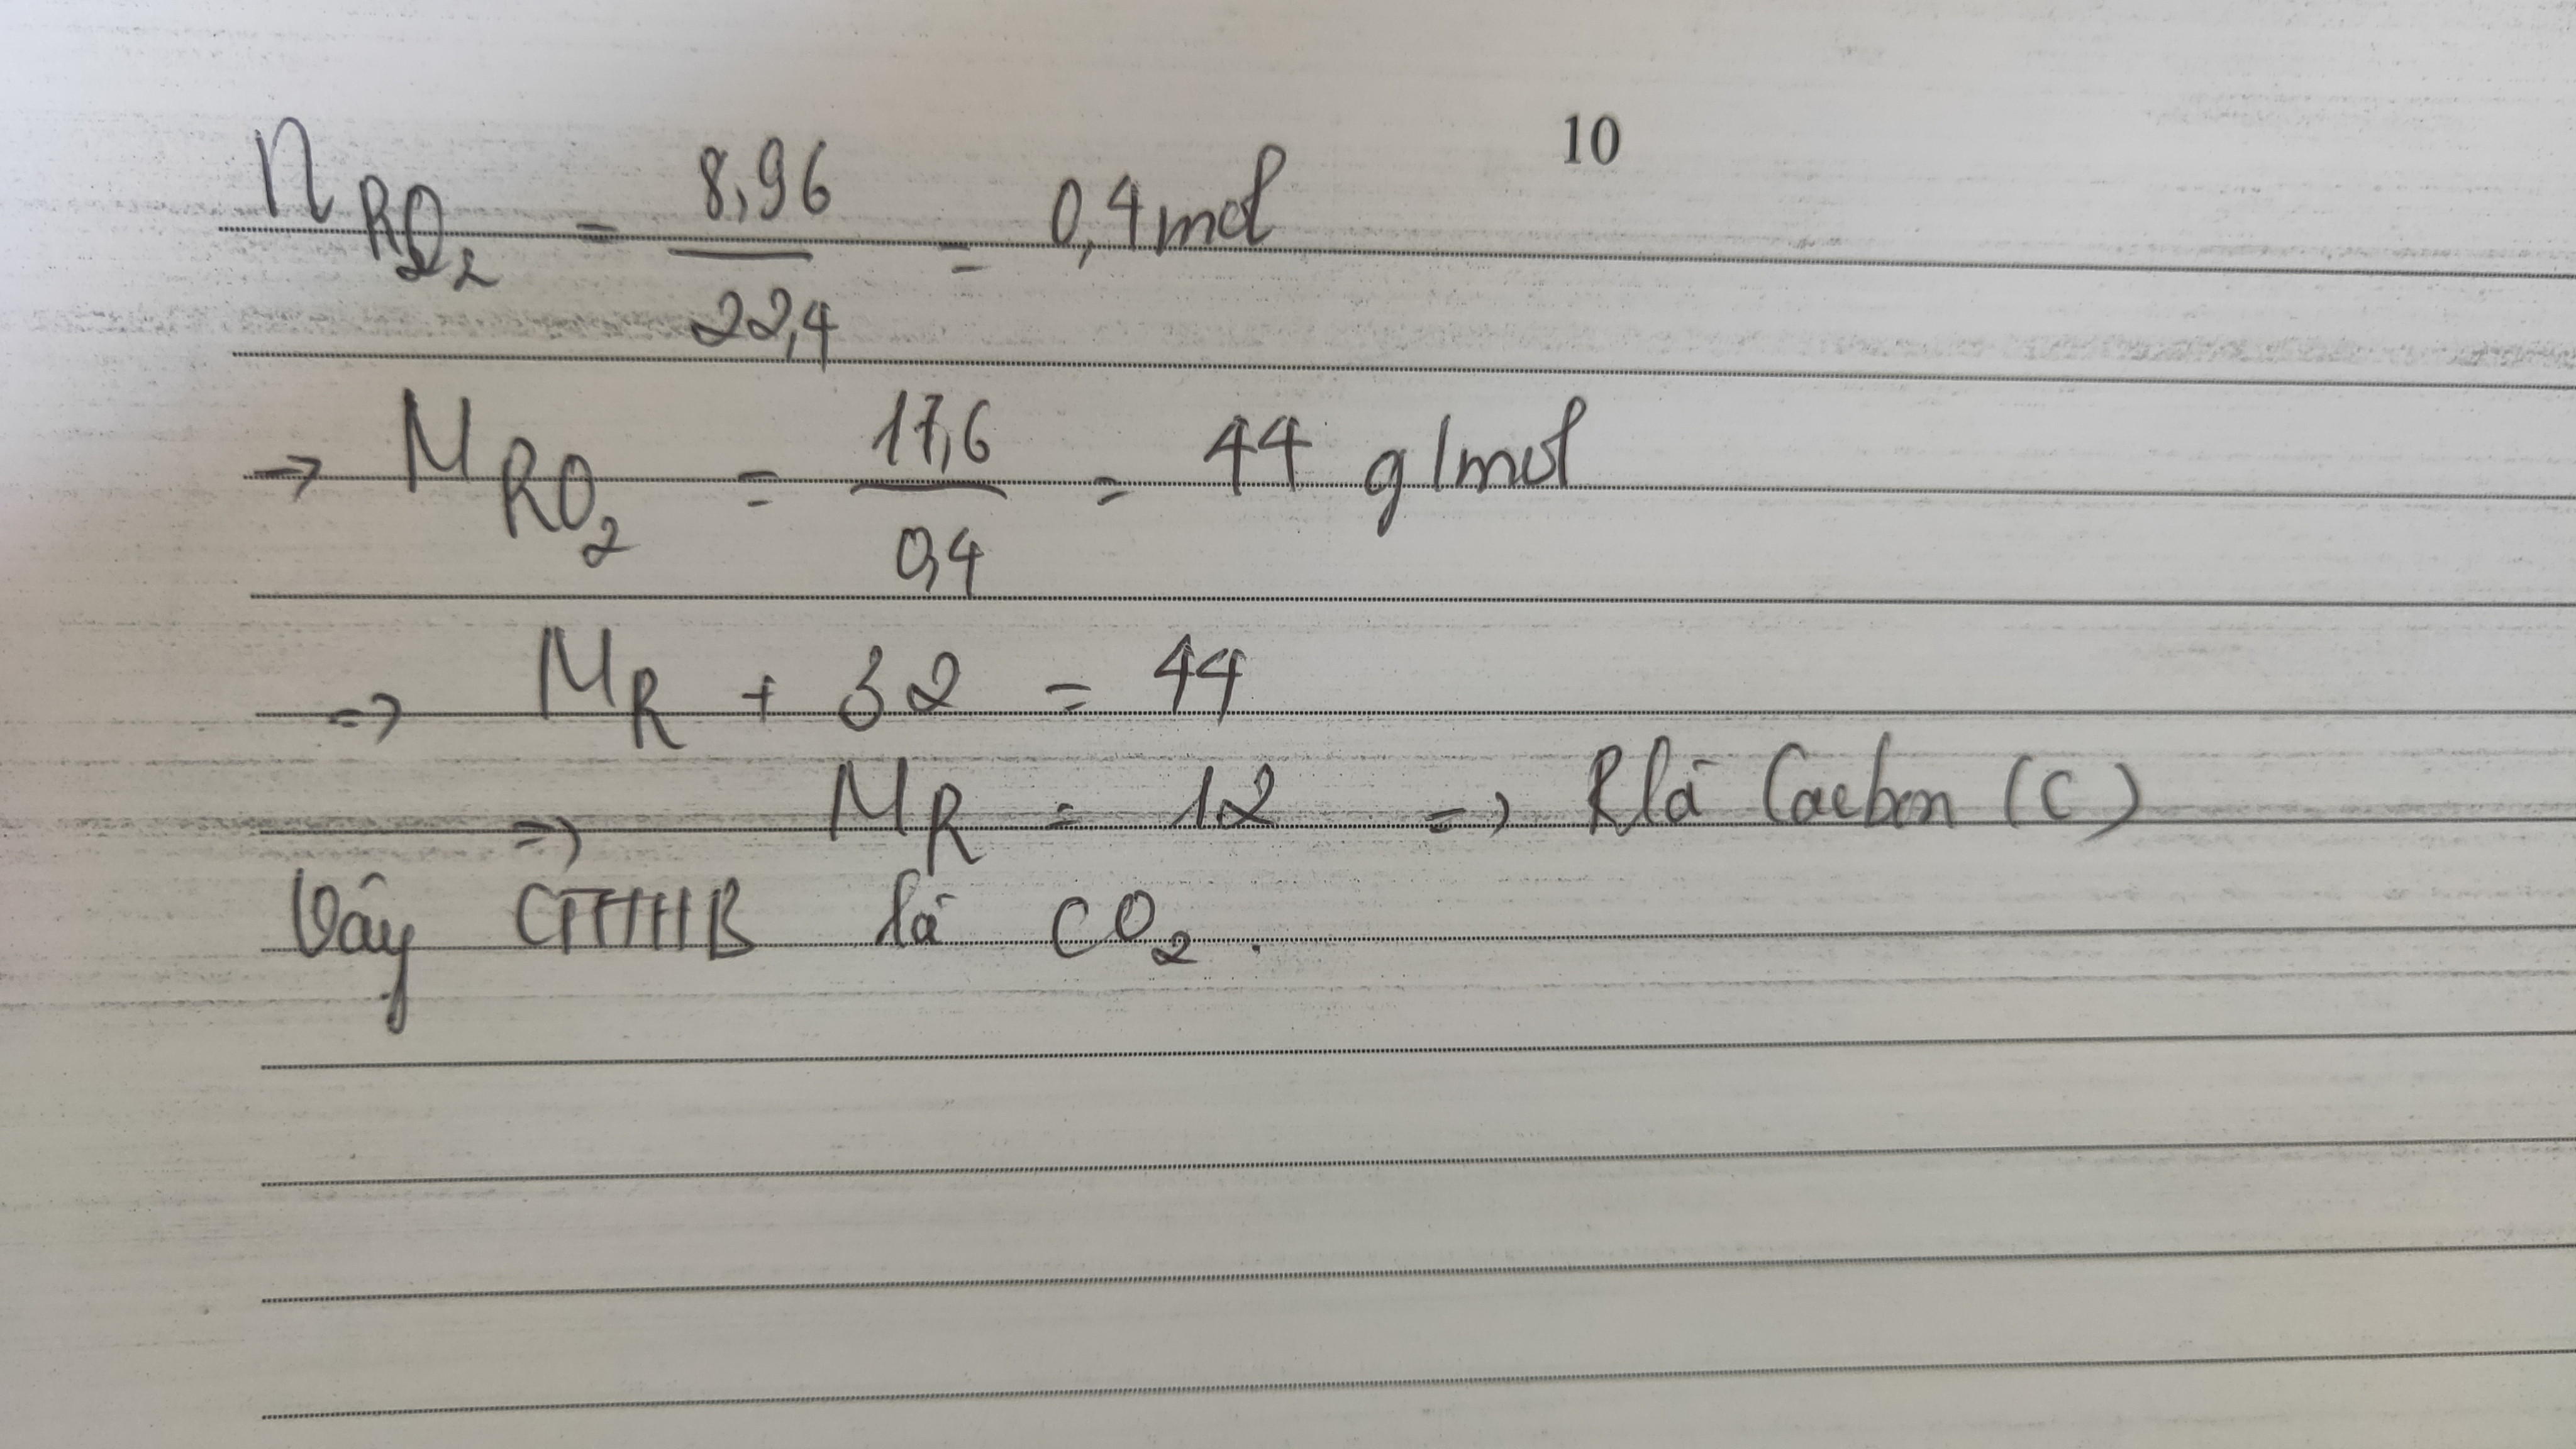 10
n RO₂ = 8,96 / 22,4 = 0,4 mol
→ M RO₂ = 17,6 / 0,4 = 44 g/mol
=> M R + 32 = 44
=> M R = 12 => R là Cacbon (C)
Vậy CTHH B là CO₂.